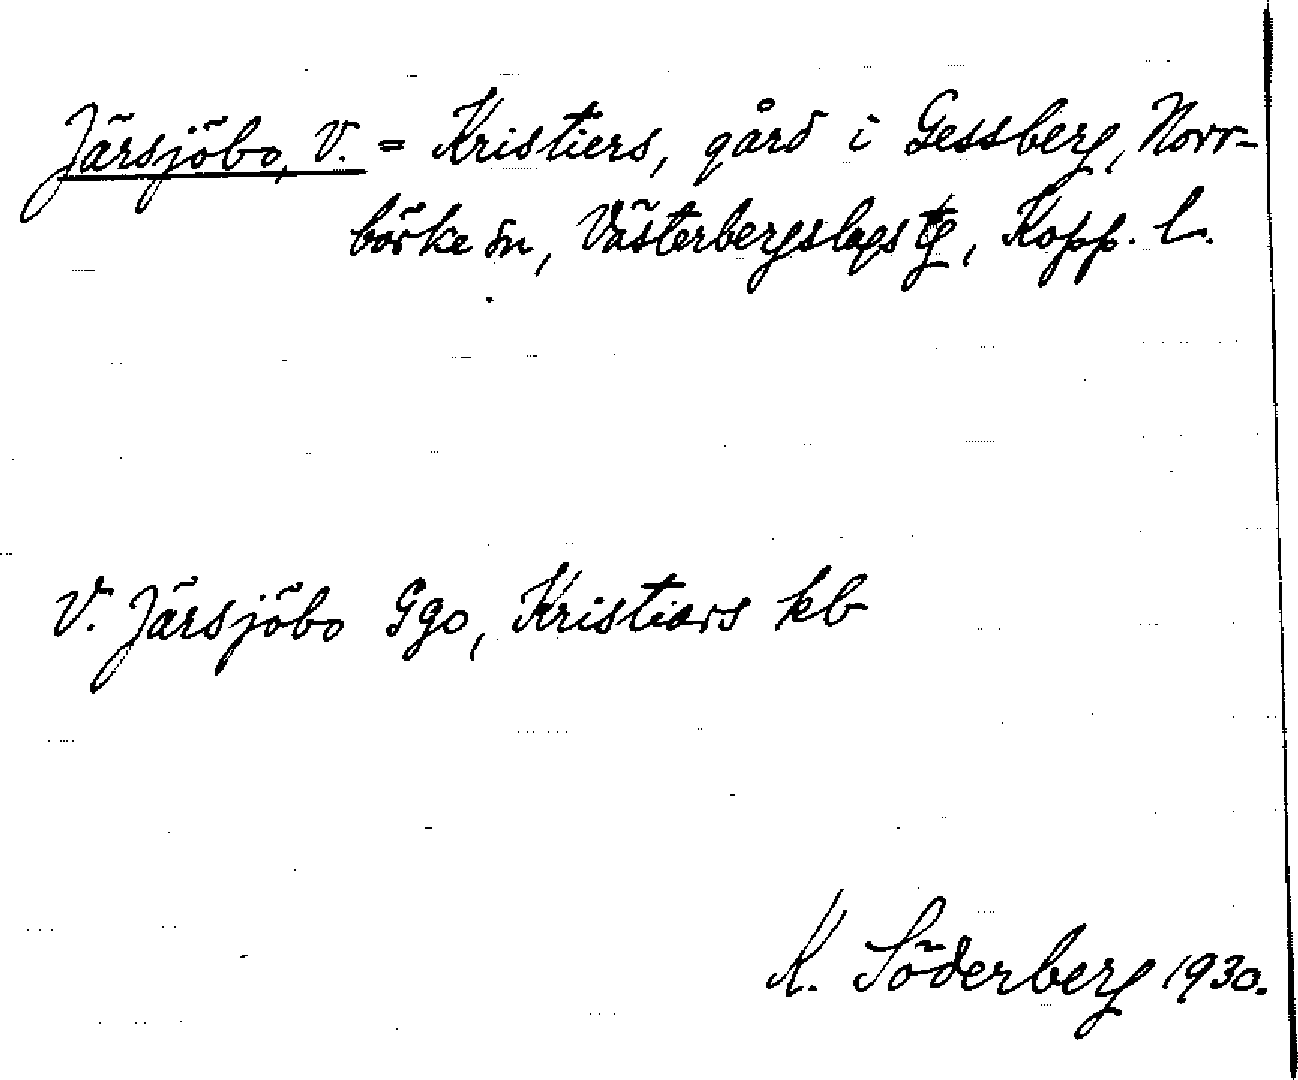 Järsjöbo, V. = Kristiers, gård i Gessberg, Norr-
bärke sn, Västerbergslags tg, Kopp. l.
V. Järsjöbo Ggo, Kristiars kb
K. Söderberg 1930.